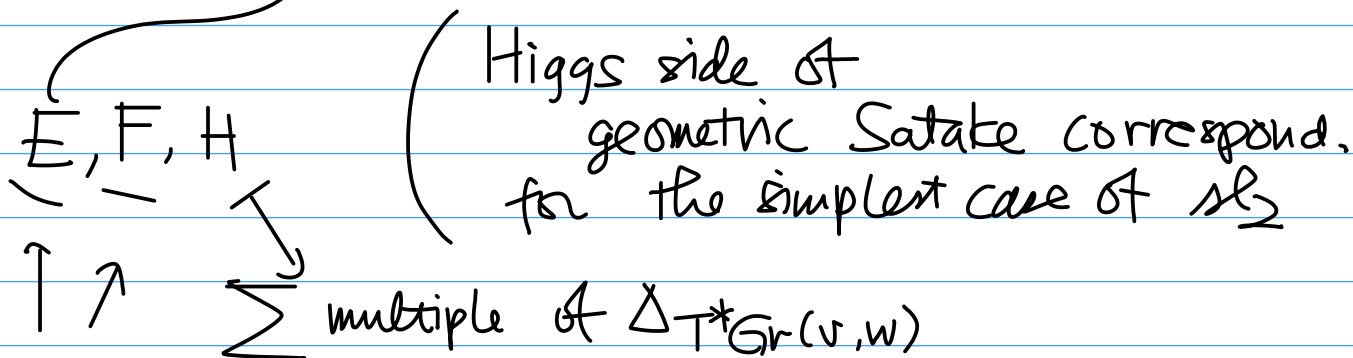 Higgs side of
E, F, H geometric Satake correspond.
for the simplest case of sl₂
∑ multiple of Δ_{T*Gr(v,w)}